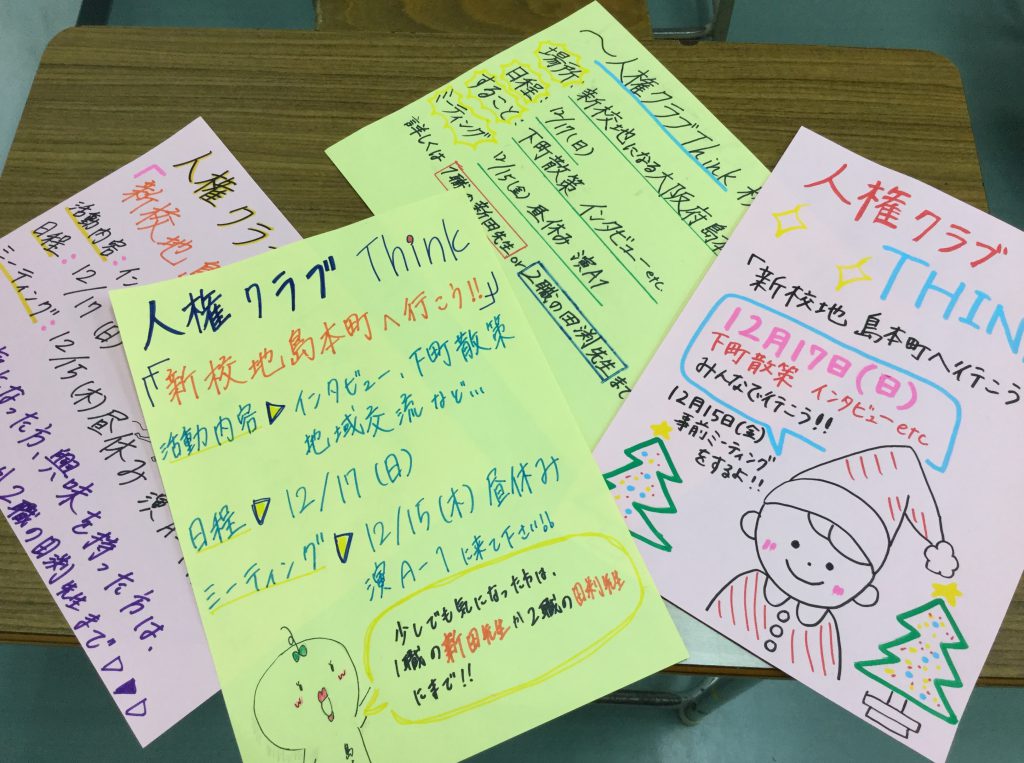 人権クラブ Think
「新校地島本町へ行こう!!」
活動内容▶インタビュー、下町散策
地域交流など…
日程▶12/17(日)
ミーティング▶12/15(木)昼休み
演A-1に来て下さい!!
少しでも気になった方は、
1職の新田先生か2職の田渕先生
にまで!!
人権クラブ
THIN
「新校地 島本町へ行こう
12月17日(日)
下町散策 インタビューetc
みんなで行こう!!
12月15日(金)
事前ミーティング
をするよ!!
〜人権クラブThink
場所:新校地になる大阪府島
日程:12/17(日)
すること:下町散策 インタビューetc
ミーティング:12/15(金)昼休み 演A1
詳しくは1職の新田先生or2職の田渕先生まで
人権クラ
「新校地
活動内容:イン
日程:12/17(日)
ミーティング:12/15(木)昼休み 演
なった方、興味を持った方は、
2職の田渕先生まで